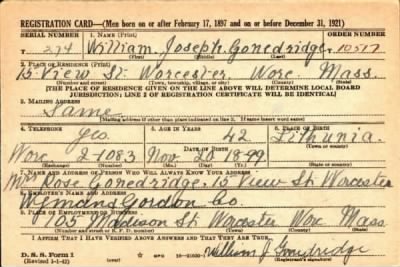 REGISTRATION CARD—(Men born on or after February 17, 1897 and on or before December 31, 1921)
SERIAL NUMBER 1. NAME (Print) ORDER NUMBER
T 274 William Joseph Gonedridge 10517
(First) (Middle) (Last)
2. PLACE OF RESIDENCE (Print)
15 View St. Worcester, Worc Mass.
(Number and street) (Town, township, village, or city) (County) (State)
[THE PLACE OF RESIDENCE GIVEN ON THE LINE ABOVE WILL DETERMINE LOCAL BOARD
JURISDICTION; LINE 2 OF REGISTRATION CERTIFICATE WILL BE IDENTICAL]
3. MAILING ADDRESS
Same
[Mailing address if other than place indicated on line 2. If same insert word same]
4. TELEPHONE 5. AGE IN YEARS 6. PLACE OF BIRTH
yes 42 Lithunia
DATE OF BIRTH (Town or county)
Worc 2-7083 Nov. 20 1899
(Exchange) (Number) (Mo.) (Day) (Yr.) (State or country)
7. NAME AND ADDRESS OF PERSON WHO WILL ALWAYS KNOW YOUR ADDRESS
Mrs Rose Gonedridge, 15 View St Worcester
8. EMPLOYER'S NAME AND ADDRESS
Wymans Gordon Co.
9. PLACE OF EMPLOYMENT OR BUSINESS
105 Maddison St Worcester Worc Mass
(Number and street or R. F. D. number) (Town) (County) (State)
I AFFIRM THAT I HAVE VERIFIED ABOVE ANSWERS AND THAT THEY ARE TRUE.
D. S. S. Form 1 William J Gonedridge
(Revised 1-1-42) (over) (Registrant's signature)